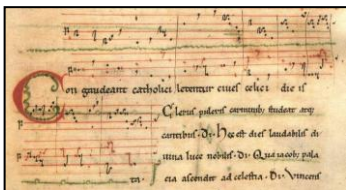 Congaudeant catholici letentur ciues celici die is
Clerus pulcris carminibus studeat atque
cantibus. D. Hec est dies laudabilis di
uina luce nobilis. D. Qua iacob; pala
cia ascendit ad celestia. D. Vincens